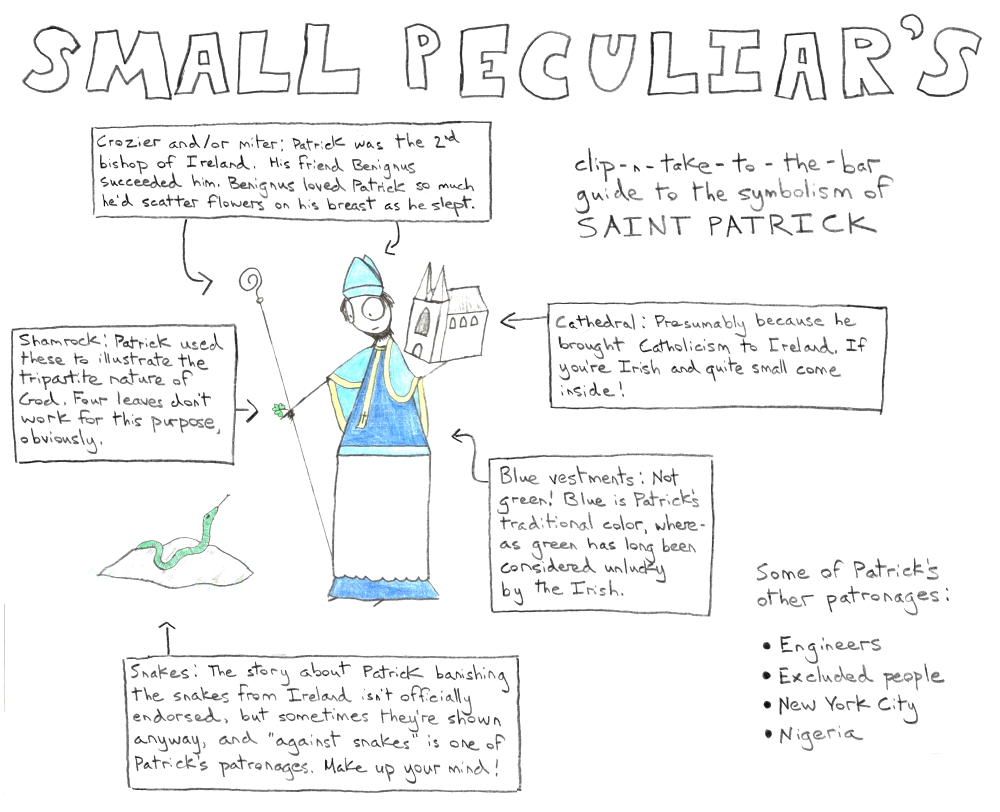 SMALL PECULIAR'S
clip-n-take-to-the-bar
guide to the symbolism of
SAINT PATRICK
Crozier and/or miter: Patrick was the 2nd
bishop of Ireland. His friend Benignus
succeeded him. Benignus loved Patrick so much
he'd scatter flowers on his breast as he slept.
Shamrock: Patrick used
these to illustrate the
tripartite nature of
God. Four leaves don't
work for this purpose,
obviously.
Cathedral: Presumably because he
brought Catholicism to Ireland. If
you're Irish and quite small come
inside!
Blue vestments: Not
green! Blue is Patrick's
traditional color, where-
as green has long been
considered unlucky
by the Irish.
Snakes: The story about Patrick banishing
the snakes from Ireland isn't officially
endorsed, but sometimes they're shown
anyway, and "against snakes" is one of
Patrick's patronages. Make up your mind!
Some of Patrick's
other patronages:
• Engineers
• Excluded people
• New York City
• Nigeria